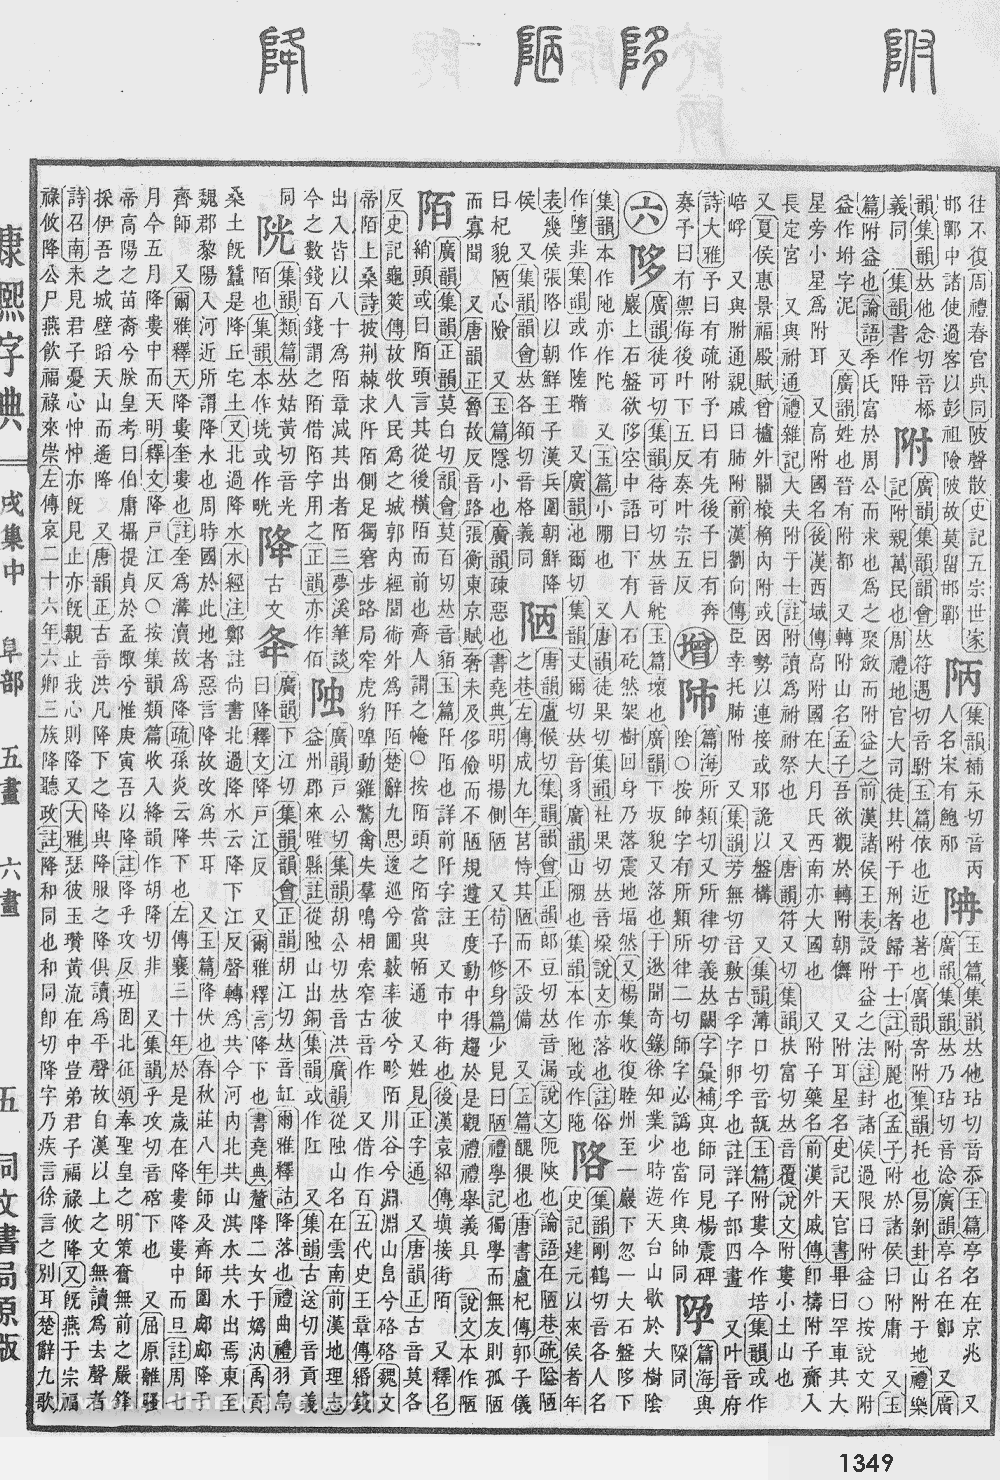 附
陊
陋
降
往不復周禮春官典同陂聲散史記五宗世家
邯鄲中諸使過客以彭祖險陂故莫留邯鄲
陃
集韻補永切音丙
人名宋有鮑邴
玉篇集韻𠀤他玷切音忝玉篇亭名在京兆 又
廣韻集韻𠀤乃玷切音淰廣韻亭名在鄭 又廣
韻集韻𠀤他念切音㮇
義同 集韻書作䧔
附
廣韻集韻韻會𠀤符遇切音駙玉篇依也近也著也廣韻寄附集韻託也易剝卦山附於地禮樂
記附親萬民也周禮地官大司徒其附于刑者歸于士註附麗也孟子附於諸侯曰附庸 又玉
篇附益也論語季氏富於周公而求也爲之聚斂而附益之前漢諸侯王表設附益之法註封諸侯過限曰附益○按說文附
益作坿字泥 又廣韻姓也晉有附都 又轉附山名孟子吾欲觀於轉附朝儛 又附耳星名史記天官書畢曰罕車其大
星旁小星爲附耳 又高附國名後漢西域傳高附國在大月氏西南亦大國也 又附子藥名前漢外戚傳卽擣附子齎入
長定宮 又與祔通禮雜記大夫附于士註附讀爲祔祔祭也 又唐韻符又切集韻扶富切𠀤音覆說文附婁小土山也
又夏侯惠景福殿賦曾櫨外關榱桷內附或因勢以連接或邪詭以盤構 又集韻薄口切音瓿玉篇附婁今作培集韻或作
㟊㟉 又與胕通親戚曰肺附前漢劉向傳臣幸托肺附 又集韻芳無切音敷古孚字卵孚也註詳子部四畫 又叶音府
詩大雅予曰有疏附予曰有先後予曰有奔
奏予曰有禦侮後叶下五反奏叶宗五反
增
篇海所類切又所律切義𠀤闕字彙補與師同見楊震碑
陰○按帥字有所類所律二切師字必譌也當作與帥同
篇海與
隙同
六
陊
廣韻徒可切集韻待可切𠀤音舵玉篇壞也廣韻下坂貌又落也于逖聞奇錄徐知業少時遊天台山歇於大樹陰
巖上石盤欲陊空中語曰下有人石矻然架樹回身乃落震地塌然又楊集收復睦州至一巖下忽一大石盤陊下
集韻本作阤亦作陀 又玉篇小𡹔也 又唐韻徒果切集韻杜果切𠀤音垜說文亦落也註俗
作墮非集韻或作陸墮 又廣韻池爾切集韻丈爾切𠀤音豸廣韻山𡹔也集韻本作阤或作陁
㟯
集韻剛鶴切音各人名
史記建元以來侯者年
表幾侯張㟯以朝鮮王子漢兵圍朝鮮降
侯 又集韻韻會𠀤各頟切音格義同
陋
唐韻盧候切集韻韻會正韻郎豆切𠀤音漏說文阨陜也論語在陋巷疏隘陋
之巷左傳成九年莒恃其陋而不設備 又玉篇醜猥也唐書盧杞傳郭子儀
曰杞貌陋心險 又玉篇隱小也廣韻疎惡也書堯典明明揚側陋 又荀子修身篇少見曰陋禮學記獨學而無友則孤陋
而寡聞 又唐韻正魯故反音路張衡東京賦奢未及侈儉而不陋規遵王度動中得趨於是觀禮禮舉義具 說文本作㔷
陌
廣韻集韻正韻莫白切韻會莫百切𠀤音貊玉篇阡陌也詳前阡字註 又市中街也後漢袁紹傳塡接街陌 又釋名
綃頭或曰陌頭言其從後橫陌而前也齊人謂之㡋○按陌頭之陌當與帞通 又姓見正字通 又唐韻正古音莫各
反史記龜筴傳故牧人民爲之城郭內經閭術外爲阡陌楚辭九思逡巡兮圃藪率彼兮畛陌川谷兮淵淵山𨸏兮硌硌魏文
帝陌上桑詩披荊棘求阡陌側足獨窘步路局窄虎豹嘷動雞驚禽失羣鳴相索窄古音作 又借作百五代史王章傳緡錢
出入皆以八十爲陌章減其出者陌三夢溪筆談
今之數錢百錢謂之陌借陌字用之正韻亦作佰
䧆
廣韻戸公切集韻胡公切𠀤音洪廣韻從䧆山名在雲南前漢地理志
益州郡來唯縣註從䧆山出銅集韻或作𨹃 又集韻古送切音貢義
同
㫕
集韻類篇𠀤姑黃切音光
陌也集韻本作垙或作㫕
降
古文夅
廣韻下江切集韻韻會正韻胡江切𠀤音缸爾雅釋詁降落也禮曲禮羽鳥
曰降釋文降戸江反 又爾雅釋言降下也書堯典釐降二女于嬀汭禹貢
桑土旣蠶是降丘宅土又北過降水水經注鄭註尚書北過降水云降下江反聲轉爲共今河內北共山淇水共水出焉東至
魏郡黎陽入河近所謂降水也周時國於此地者惡言降故改爲共耳 又玉篇降伏也春秋莊八年師及齊師圍郕郕降于
齊師 又爾雅釋天降婁奎婁也註奎爲溝瀆故爲降疏孫炎云降下也左傳襄三十年於是歲在降婁降婁中而旦註周七
月今五月降婁中而天明釋文降戸江反○按集韻類篇收入絳韻作胡降切非 又集韻乎攻切音䂫下也 又屈原離騷
帝高陽之苗裔兮朕皇考曰伯庸攝提貞於孟陬兮惟庚寅吾以降註降乎攻反班固北征頌奉聖皇之明策奮無前之嚴鋒
採伊吾之城壁蹈天山而遙降 又唐韻正古音洪凡降下之降與降服之降俱讀爲平聲故自漢以上之文無讀爲去聲者
詩召南未見君子憂心忡忡亦旣見止亦旣覯止我心則降又大雅瑟彼玉瓚黃流在中豈弟君子福祿攸降又旣燕于宗福
祿攸降公尸燕飮福祿來崇左傳哀二十六年六卿三族降聽政註降和同也和同卽切降字乃疾言徐言之別耳楚辭九歌
康熙字典 戌集中 阜部 五畫 六畫 五 同文書局原版
1349